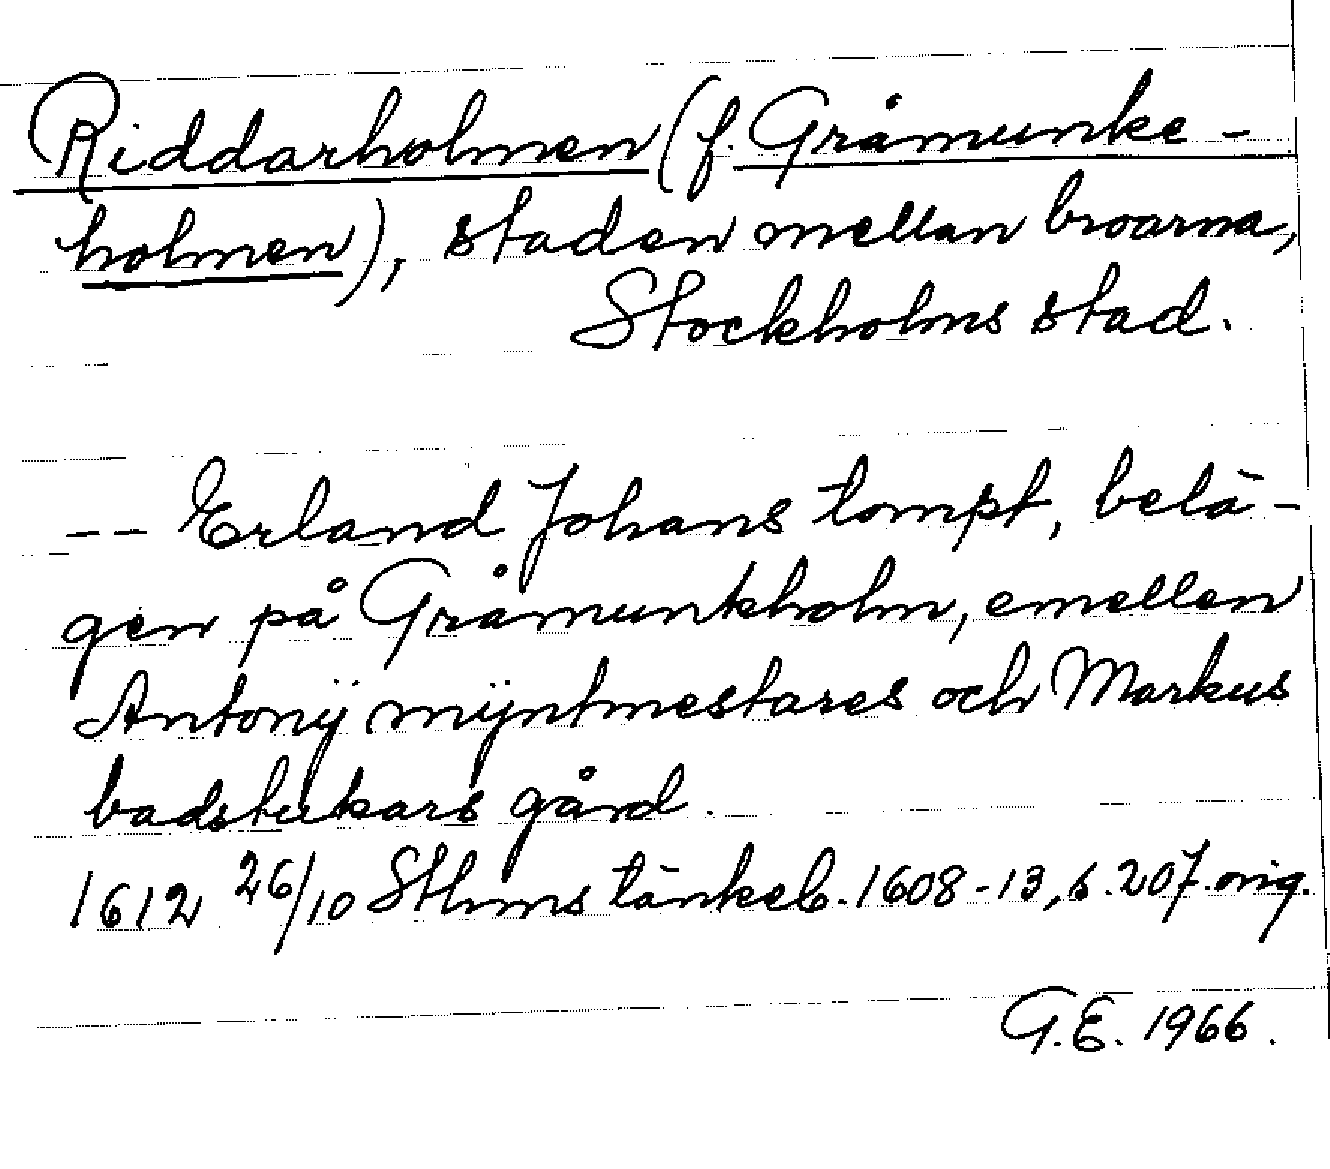 Riddarholmen (f. Gråmunke-
holmen), staden mellan broarna,
Stockholms stad.
-- Erland Johans tompt, belä-
gen på Gråmunkholm, emellen
Antonÿ mÿntmestares och Markus
badstukars gård.
1612 26/10 Sthms tänkeb. 1608-13, s. 207. orig.
G.E. 1966.